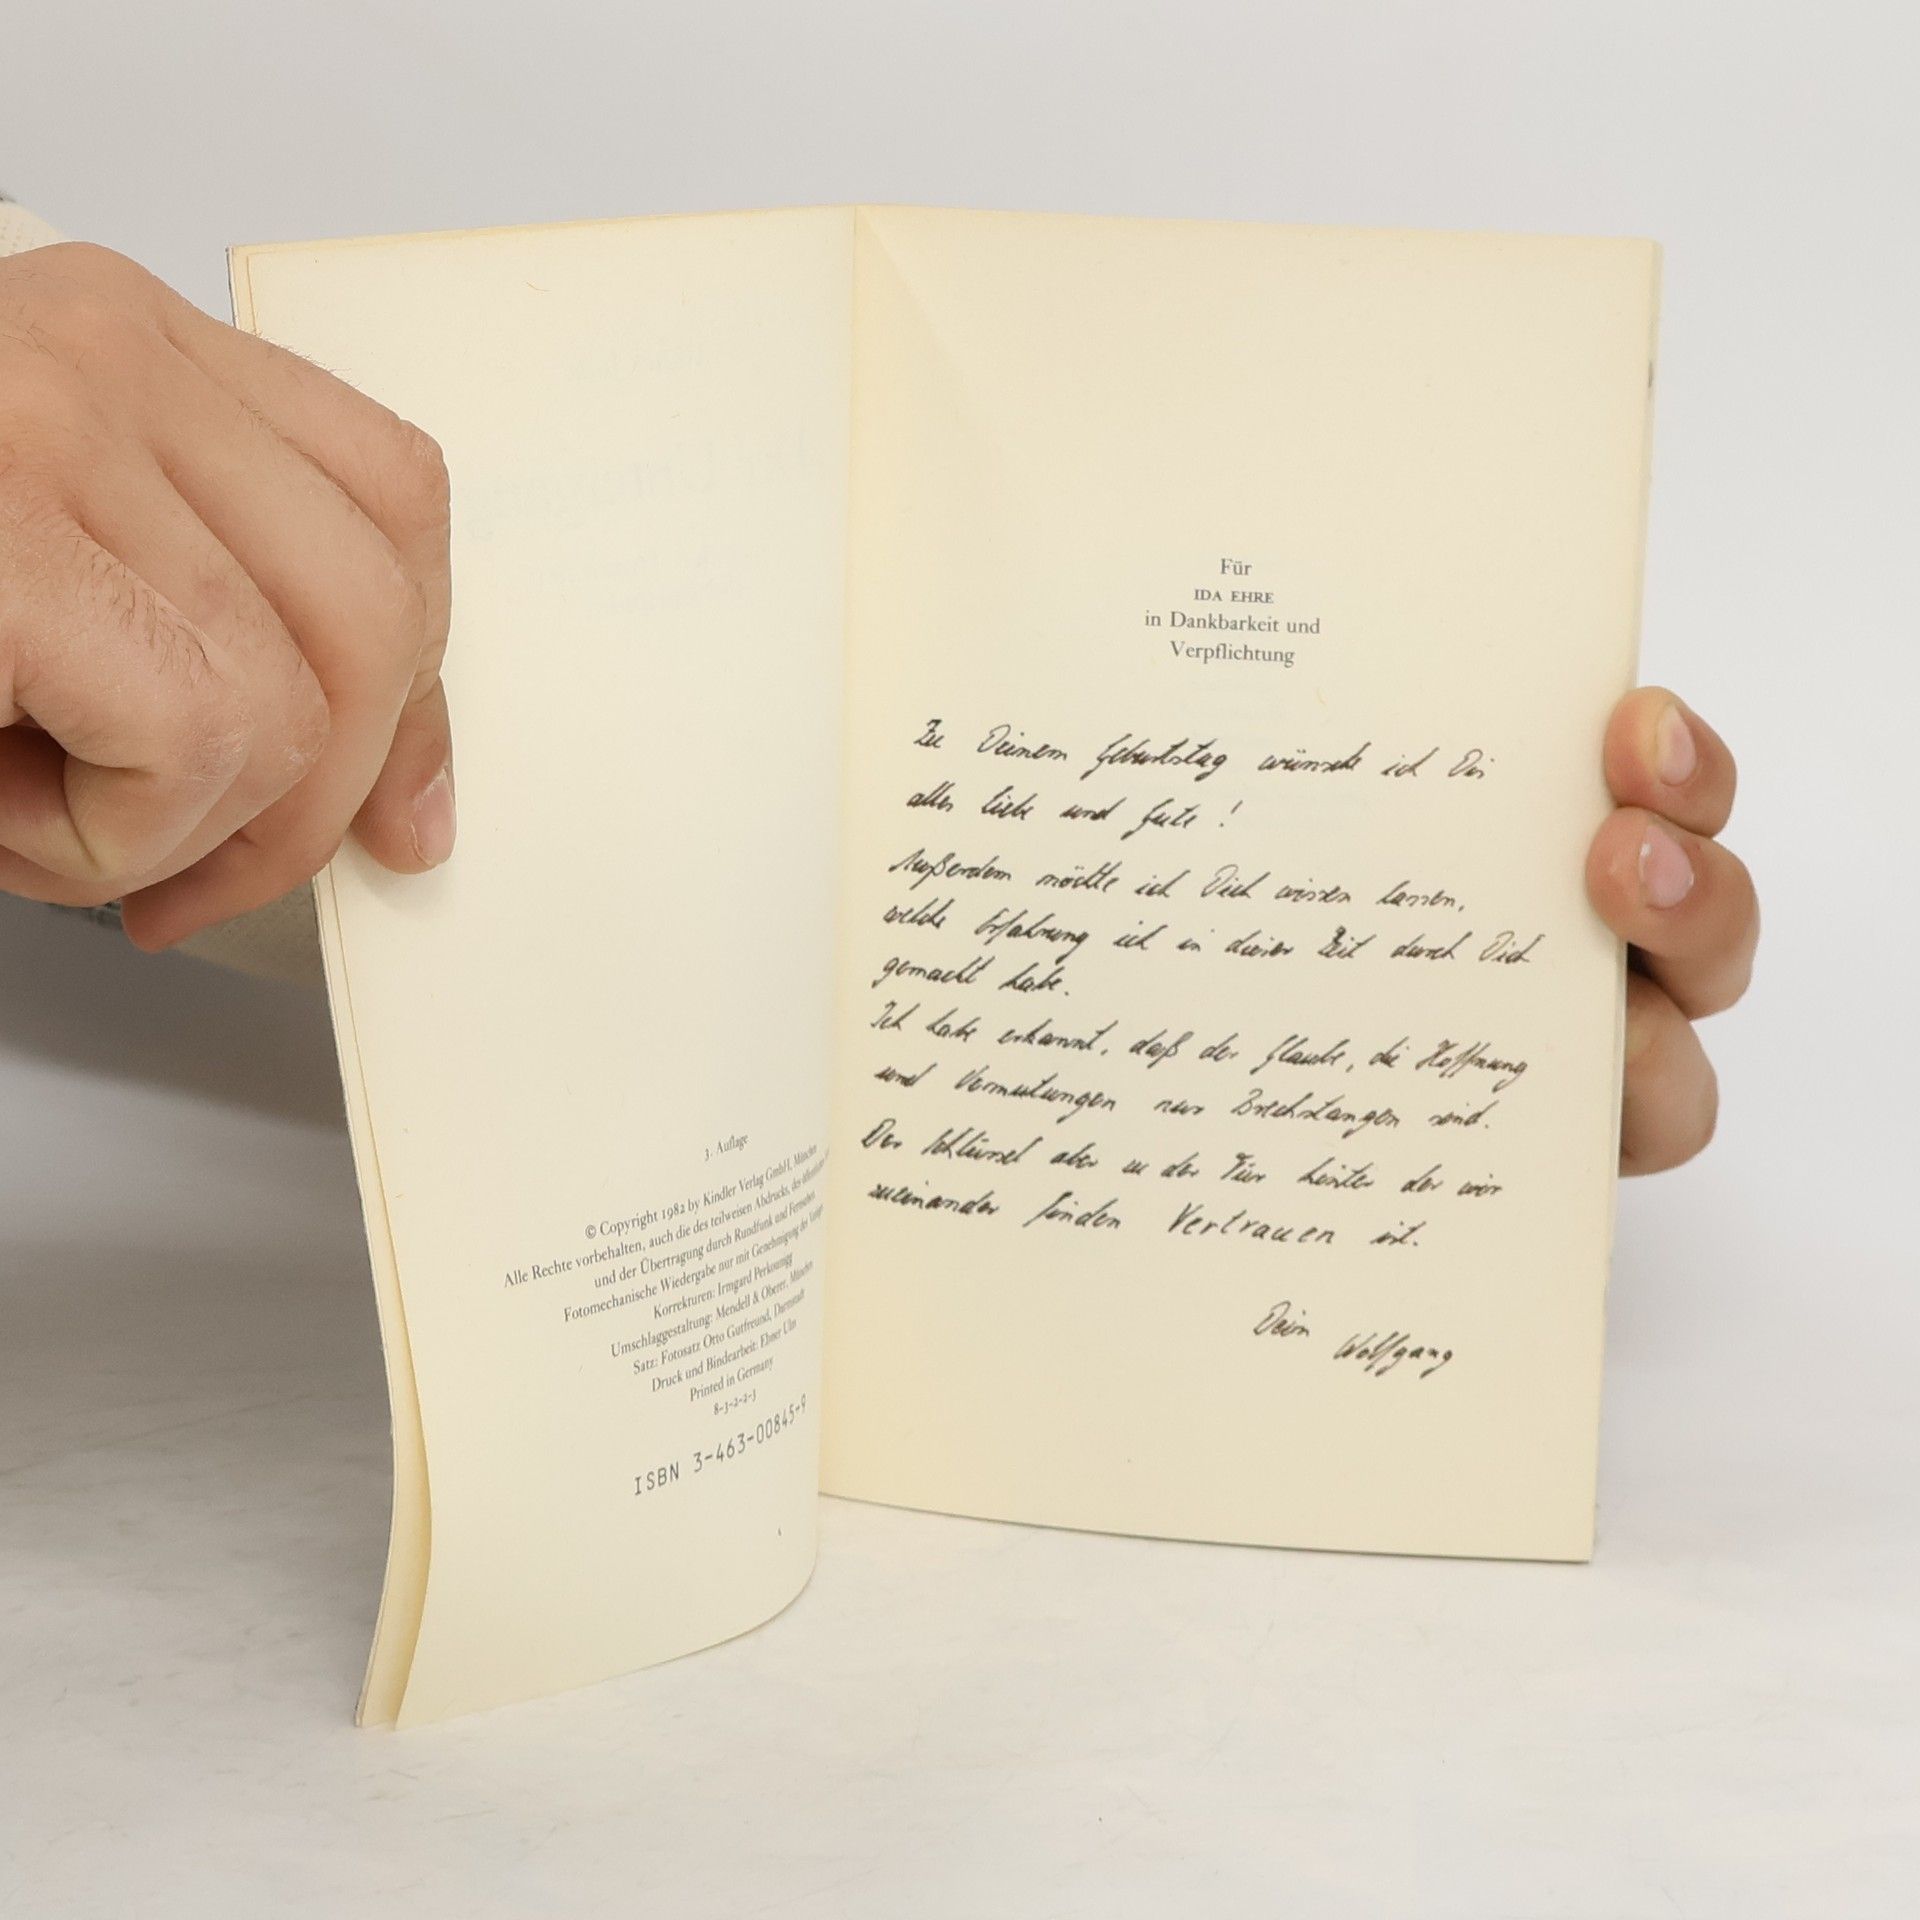 3. Auflage
© Copyright 1982 by Kindler Verlag GmbH, München
Alle Rechte vorbehalten, auch die des teilweisen Abdrucks, des öffentlichen
und der Übertragung durch Rundfunk und Fernsehen
Fotomechanische Wiedergabe nur mit Genehmigung des Verlages
Korrekturen: Irmgard Perkounigg
Umschlaggestaltung: Mendell & Oberer, München
Satz: Fotosatz Otto Gutfreund, Darmstadt
Druck und Bindearbeit: Ebner Ulm
Printed in Germany
8-3-2-2-3
ISBN 3-463-00845-9
Für
IDA EHRE
in Dankbarkeit und
Verpflichtung
Zu Deinem Geburtstag wünsche ich Dir
alles Liebe und Gute!
Außerdem möchte ich Dich wissen lassen,
welche Erfahrung ich in dieser Zeit durch Dich
gemacht habe.
Ich habe erkannt, daß der Glaube, die Hoffnung
und Vermutungen nur Brechstangen sind.
Der Schlüssel aber zu der Tür hinter der wir
zueinander finden Vertrauen ist.
Dein
Wolfgang